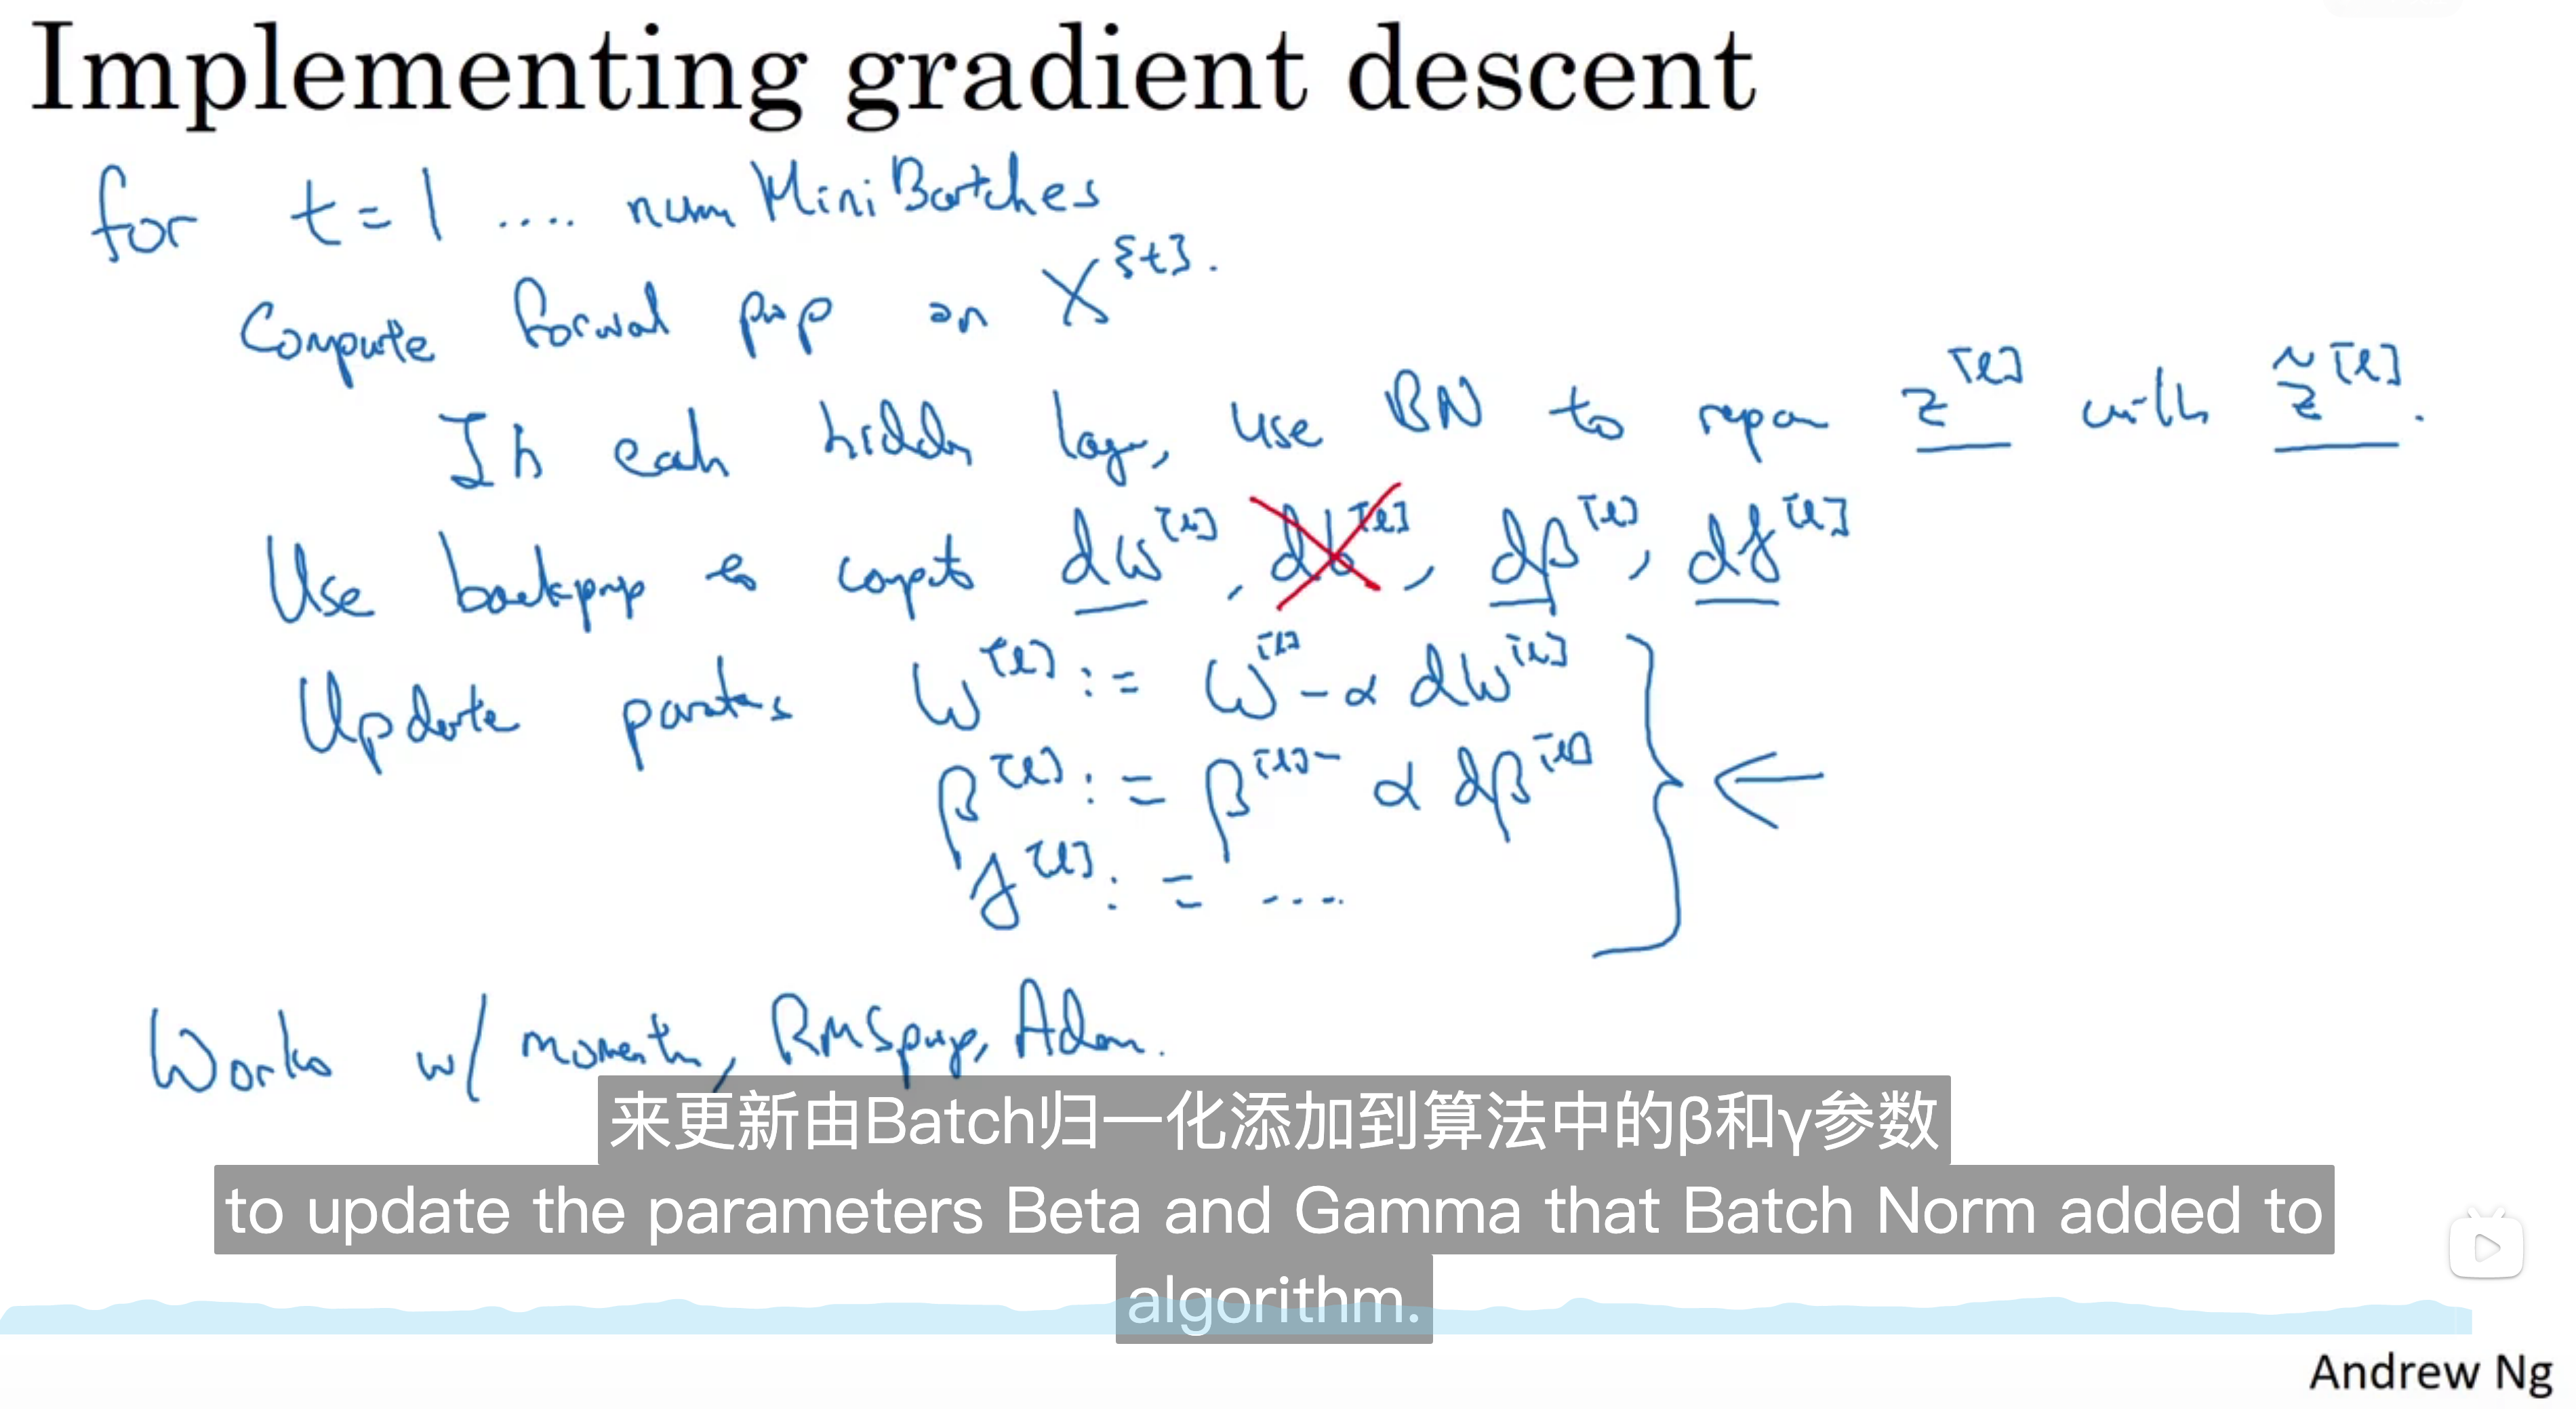 Implementing gradient descent
for t = 1 .... num Mini Batches
Compute forward prop on X^{t}.
In each hidden layer, use BN to replace z^[l] with z̃^[l].
Use backprop to compute dW^[l], db^[l], dβ^[l], dγ^[l]
Update parameters W^[l] := W^[l] - α dW^[l]
β^[l] := β^[l] - α dβ^[l]
γ^[l] := ....
Works w/ momentum, RMSprop, Adam.
来更新由Batch归一化添加到算法中的β和γ参数
to update the parameters Beta and Gamma that Batch Norm added to
algorithm.
Andrew Ng